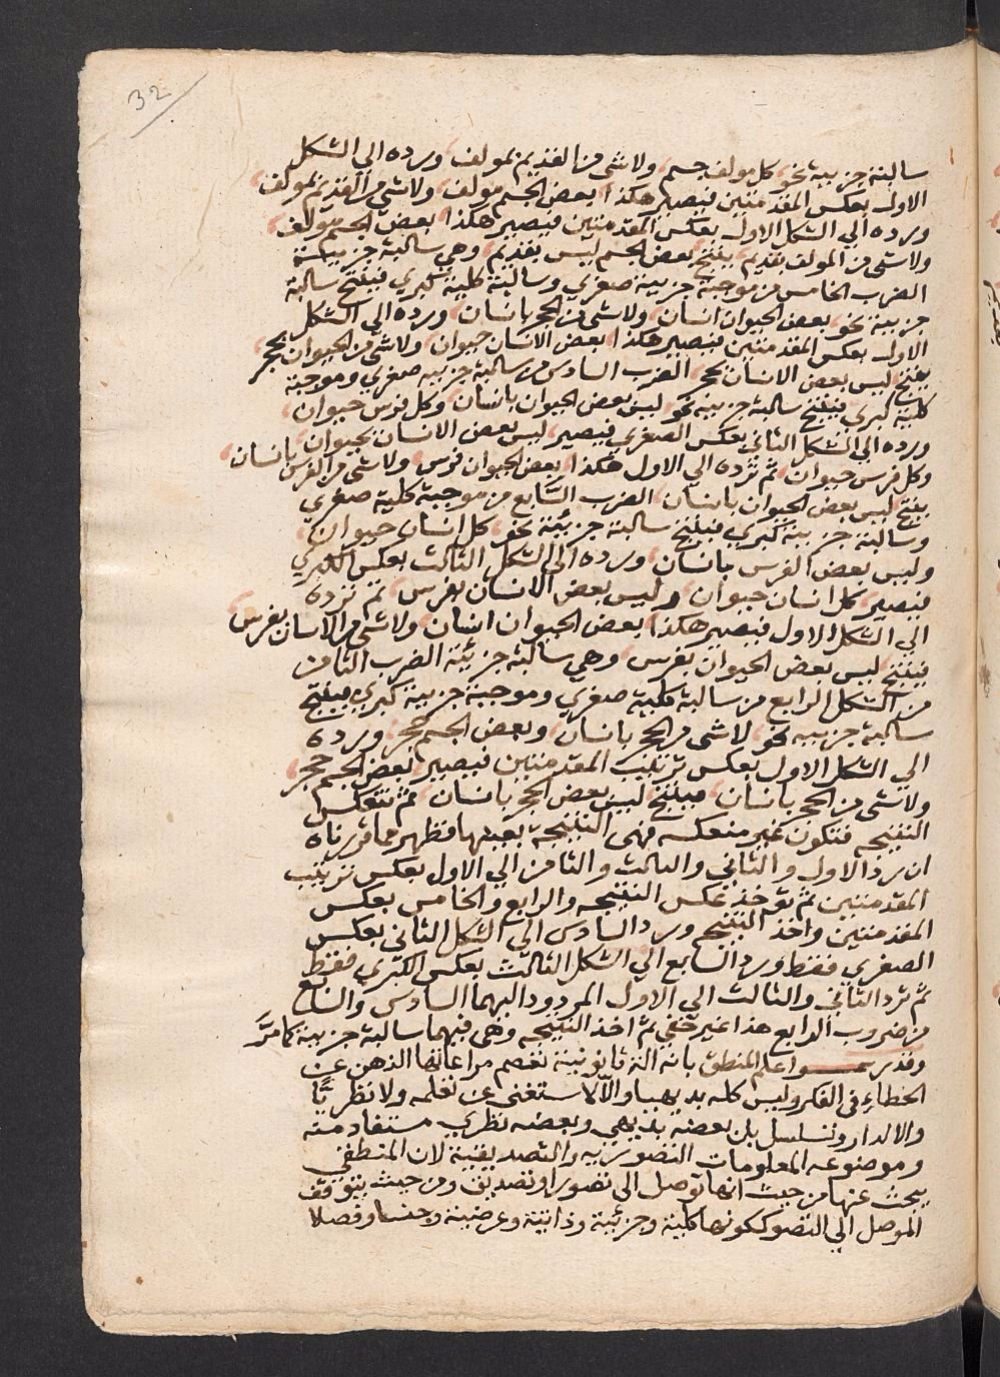 32
سالبة جزيية نحو كل مولف جسم ولا شى من القديم بمولف ورده الي الشكل
الاول بعكس المقدمتين فيصير هكذا بعض الجسم مولف ولا شي من القديم بمولف
ورده الي الشكل الاول بعكس المقدمتين فيصير هكذا بعض الجسم مولف
ولا شى من المولف بقديم ينتج بعض الجسم ليس بقديم وهي سالبة جزيية
الضرب الخامس من موجبة جزيية صغري وسالبة كلية كبري فينتج سالبة
جزيية نحو بعض الحيوان انسان ولا شى من الحجر بانسان ورده الي الشكل
الاول بعكس المقدمتين فيصير هكذا بعض الانسان حيوان ولا شى من الحيوان بحجر
ينتج ليس بعض الانسان بحجر الضرب السادس من سالبة جزييه صغري وموجبة
كلية كبري فينتج سالبة جزيية نحو ليس بعض الحيوان بانسان وكل فرس حيوان
ورده الي الشكل الثاني بعكس الصغري فيصير ليس بعض الانسان بحيوان
وكل فرس حيوان ثم ترده الي الاول هكذا بعض الحيوان فرس ولا شى من الفرس بانسان
ينتج ليس بعض الحيوان بانسان الضرب السابع من موجبة كلية صغري
وسالبة جزيية كبري فينتج سالبة جزئية نحو كل انسان حيوان
وليس بعض الفرس بانسان ورده الي الشكل الثالث بعكس الكبري
فيصير كل انسان حيوان وليس بعض الانسان بفرس ثم ترده
الي الشكل الاول فيصير هكذا بعض الحيوان انسان ولا شى من الانسان بفرس
فينتج ليس بعض الحيوان بفرس وهي سالبة جزئية الضرب الثامن
من الشكل الرابع من سالبة كلية صغري وموجبة جزيية كبري فينتج
سالبة جزييه نحو لا شى من الحجر بانسان وبعض الجسم حجر ورده
الي الشكل الاول بعكس ترتيب المقدمتين فيصير بعض الجسم حجر
ولا شى من الحجر بانسان فينتج ليس بعض الحجر بانسان ثم تنعكس
النتيجه فتكون غير منعكسه فهى النتيجة بعينها فظهر مما قررناه
ان رد الاول والثاني والثالث والثامن الي الاول بعكس ترتيب
المقدمتين ثم تؤخذ عكس النتيجه والرابع والخامس بعكس
المقدمتين واخذ النتيجه ورد السادس الي الشكل الثاني بعكس
الصغري فقط ورد السابع الي الشكل الثالث بعكس الكبري فقط
ثم ترد الثاني والثالث الي الاول المردود اليهما السادس والسابع
من ضروب الرابع هذا غير خفي ثم اخذ النتيجه وهى فيهما سالبة جزيية كما مر
وقد رسموا علم المنطق بانه الة قانونية تعصم مراعاتها الذهن عن
الخطاء في الفكر وليس كله بديهيا والا لاستغنى عن تعلمه ولا نظريا
والا لدار وتسلسل بل بعضه بديهي وبعضه نظري مستفاد منه
وموضوعه المعلومات التصوريه والتصديقية لان المنطقي
يبحث عنها من حيث انها توصل الي تصور او تصديق ومن حيث يتوقف
الموصل الي التصور ككونها كلية وجزئية وذاتية وعرضية وجنسا وفصلا